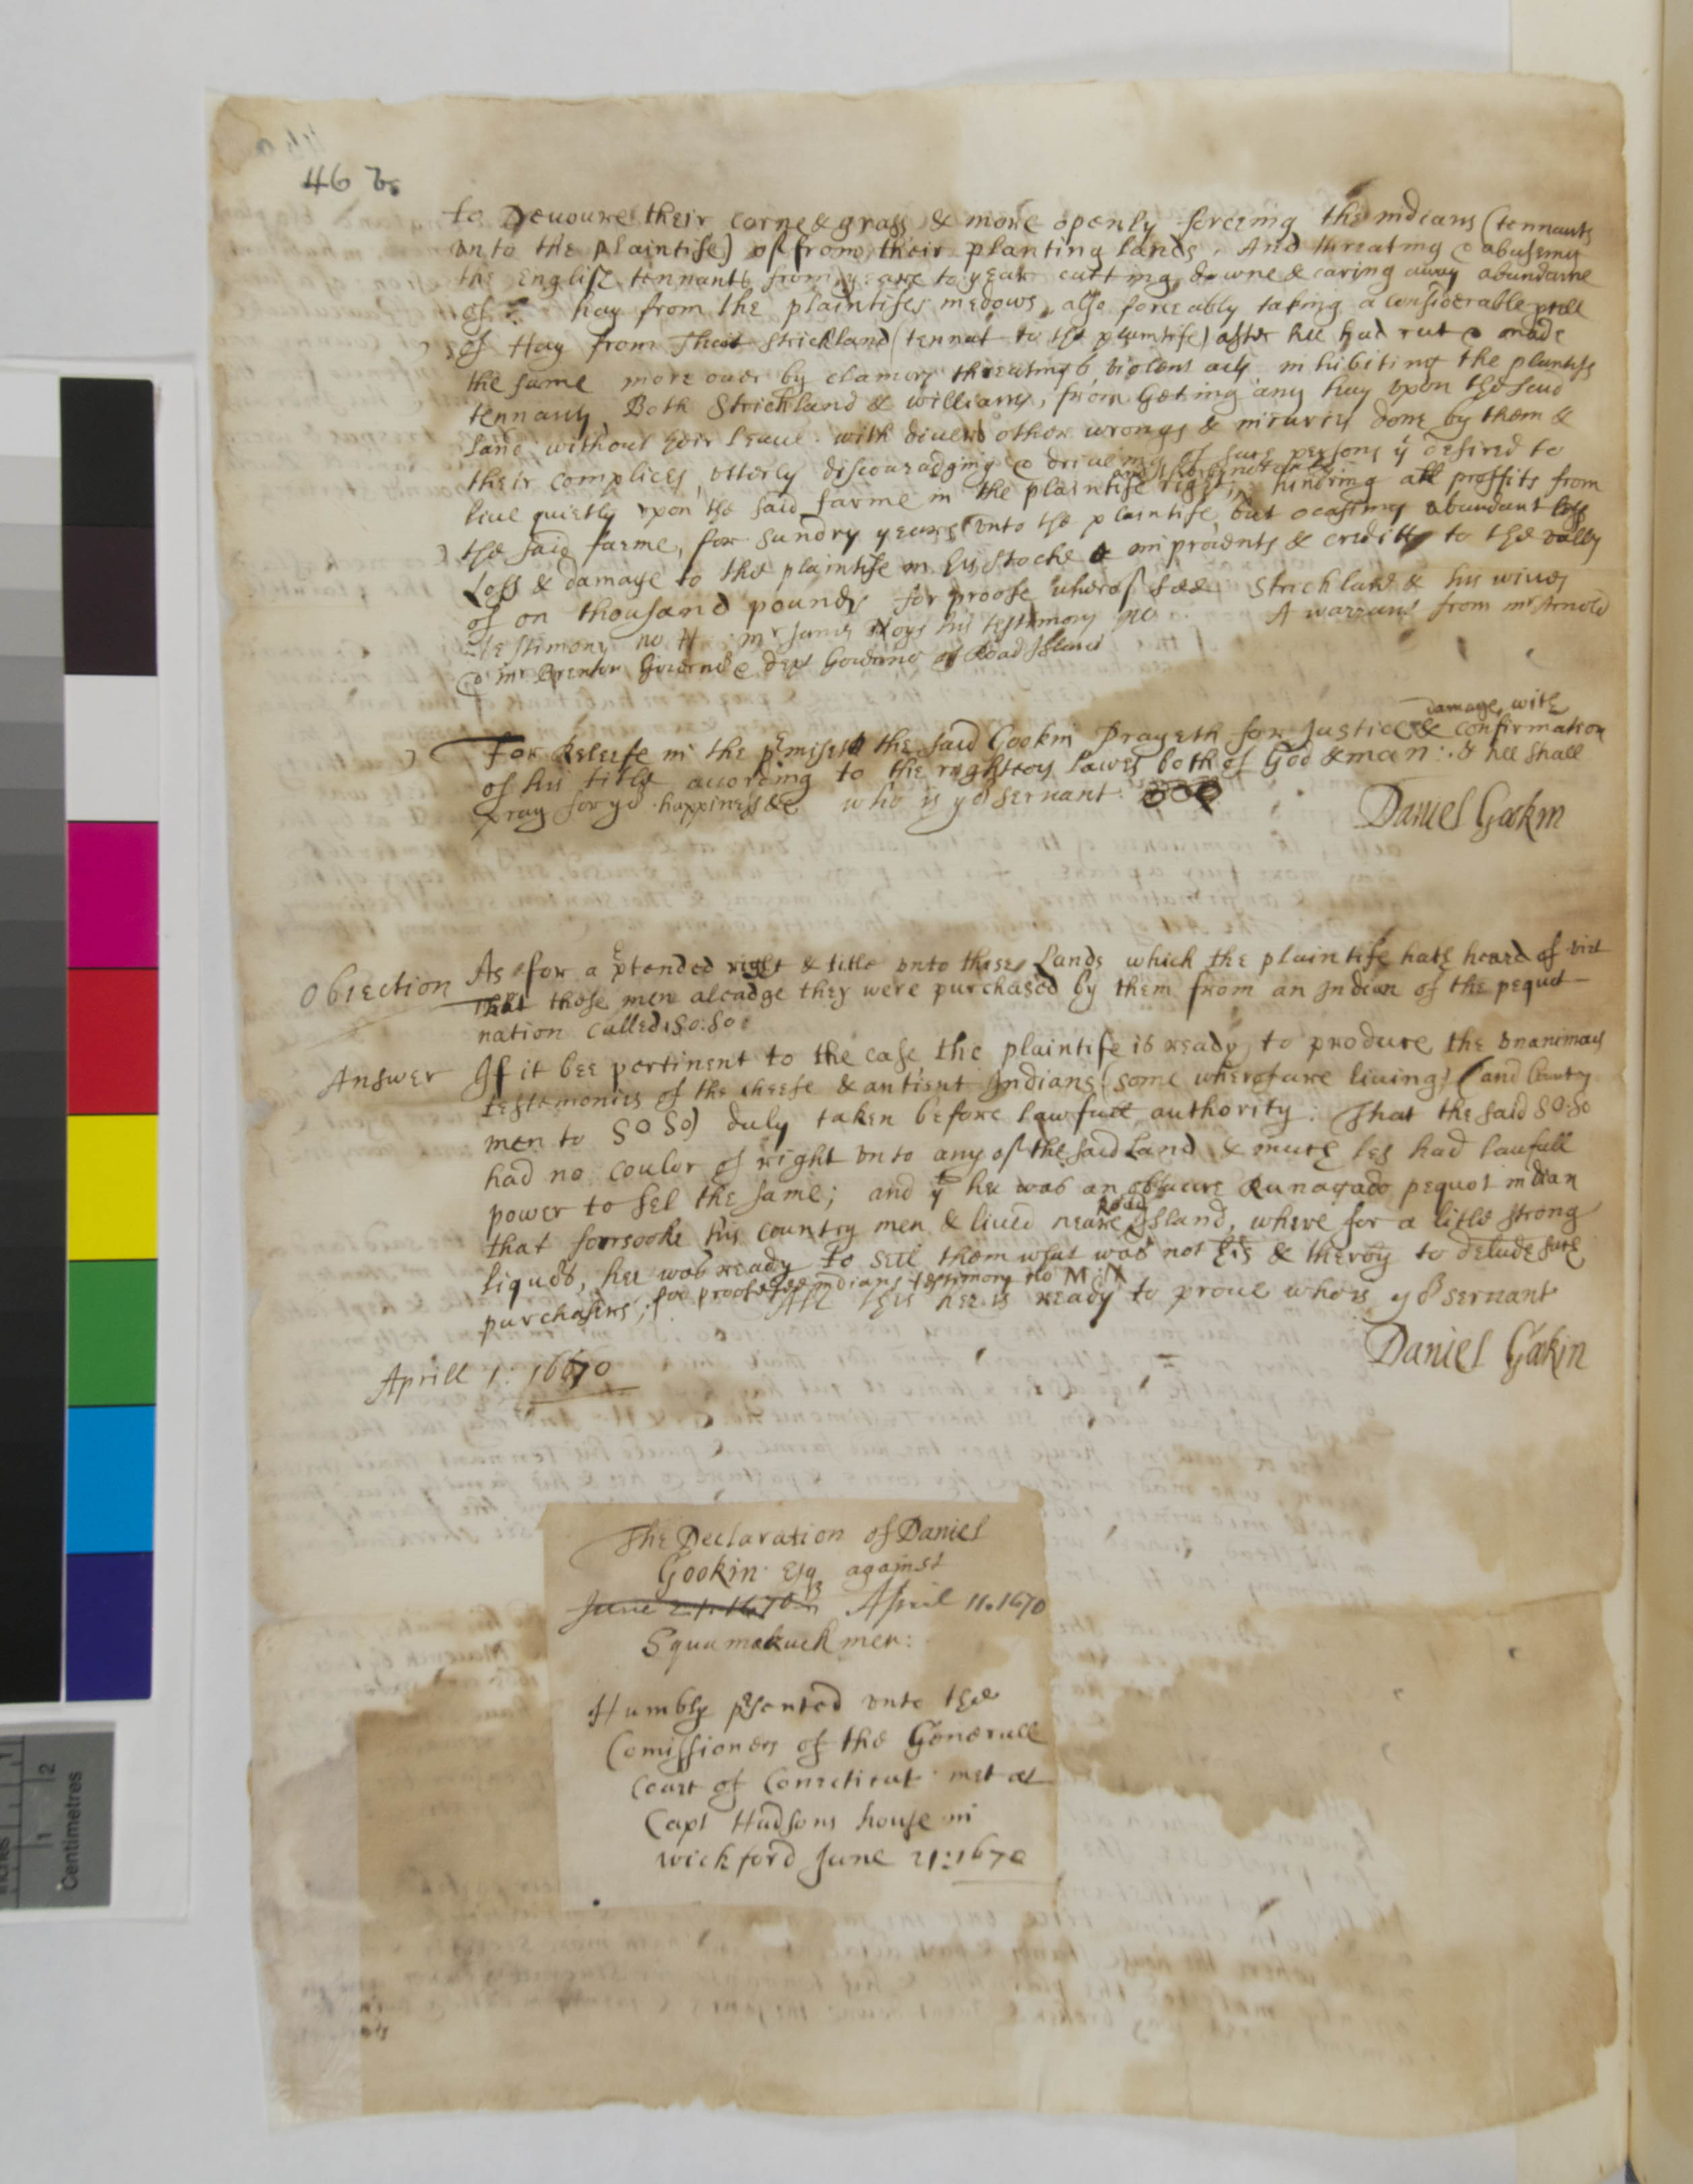 46 b.
to Devoure their corne & grass & more openly forceing the indians (tennants
vnto the plaintife) of from their planting lands. And threating & abuseing
the English tennants from yeare to year cutting downe & caring away abundance
of hay from the plaintifes medows, also forceably taking a considerable
of Hay from Strickland (tennat to the plaintife) after hee had cut & made
the same more over by clamors threatings violent acts inhibiting the plantifs
tennants, Both Strickland & williams, from Geting any hay vpon the said
land without their leaue. with divers other wrongs & iniuries done by them &
their complices, vtterly discouradging & driueing of such persons yt desired to
liue quietly vpon the said farme in the plaintife right, hindring all proffits from
the said farme, for sundry yeares vnto the plaintife but ocasiong abundant loss
Loss & damage to the plaintife in his stocke & improuents & creditt to the vally
of on thousand pounds for proofe wherof see Strickland & his wiues
testimony no H mr James Noys his testimony no A warrant from mr Arnold
& mr Brenton Gouerno & dept Gouerno of Road Island
damage, with
For Releefe in the pemises the said Gookin Prayeth for Justice & confirmation
of his title acording to the righteos lawes both of God & man: & hee shall
pray for yor happiness &c who is yor servant
Daniel Gookin
Obiection As for a ptended right & title vnto these Lands which the plaintife hath heard of viz
that those men aleadge they were purchased by them from an Indian of the pequot
nation called So:So:
Answer If it bee pertinent to the case the plaintife is ready to produce the vnanimous
testemonies of the cheefe & antient Indians (some wherof are liuing) (and Country
men to So So) duly taken before lawfull authority. That the said So:So
had no coulor of right vnto any of the said Land & much les had laufull
power to sel the same; and yt hee was an obscure Runagado pequot indian
Road
that foorsooke his country men & liued neare Island, where for a litle strong
liquors, hee was ready to sell them what was not his & therby to delude such
purchasers; for proofe see indians testimony no M:N
All this hee is ready to proue who is yor servant
Daniel Gookin
Aprill 1: 1670
The Declaration of Daniel
Gookin Esq against
June 21: 1670 April 11. 1670
Squamakuck men:
Humbly psented vnto the
Comissioners of the Generall
Court of Conecticut met at
Capt Hudsons house in
wickford June 21: 1670
Centimetres
1
2
inches